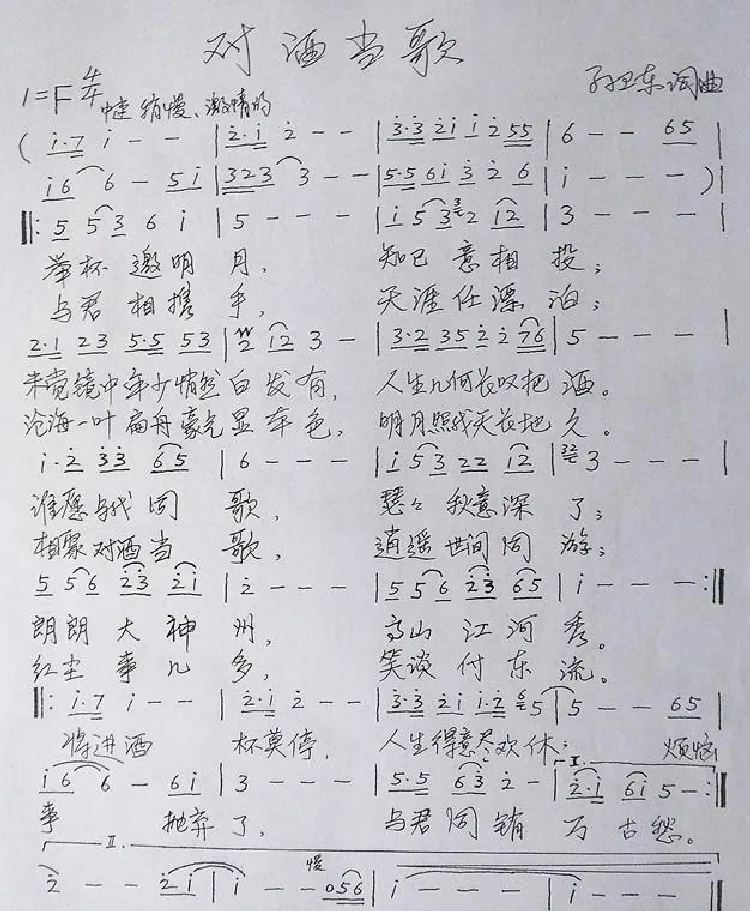 对酒当歌
1=F 4/4 中速 稍慢、激情的
孙卫东词曲
( i·7 i - - | 2·i 2 - - | 3·3 2i i2 55 | 6 - - 65 |
i6 6 - 5i | 323 3 - - | 5·5 6i 3 2 6 | i - - - ) |
‖: 5 53 6 i | 5 - - - | i 53 2 i2 | 3 - - - |
举杯邀明月, 知已意相投;
与君相携手, 天涯任漂泊;
2·1 23 5·5 53 | 2 i2 3 - | 3·2 35 2 2 76 | 5 - - - |
未觉镜中年少悄然白发有, 人生几何长叹把酒。
沧海一叶扁舟豪光显本色, 明月照我天长地久。
i·2 33 65 | 6 - - - | i 53 22 i2 | 3 - - - |
谁愿与我同歌, 瑟々秋意深了;
相聚对酒当歌, 逍遥世间同游;
5 56 23 2i | 2 - - - | 5 56 23 65 | i - - - :‖
朗朗大神州, 高山江河秀。
红尘事几多, 笑谈付东流。
‖: i·7 i - - | 2·i 2 - - | 3·3 2i i·2 65 | 5 - - 65 |
将进酒 杯莫停, 人生得意尽欢休; 烦恼
I.
i6 6 - 6i | 3 - - - | 5·5 63 2 - | 2·i 6i 5 - :‖
事 抛弃了, 与君同销万古愁。
II.
慢
2 - - 2i | i - - 056 | i - - - | i - - -